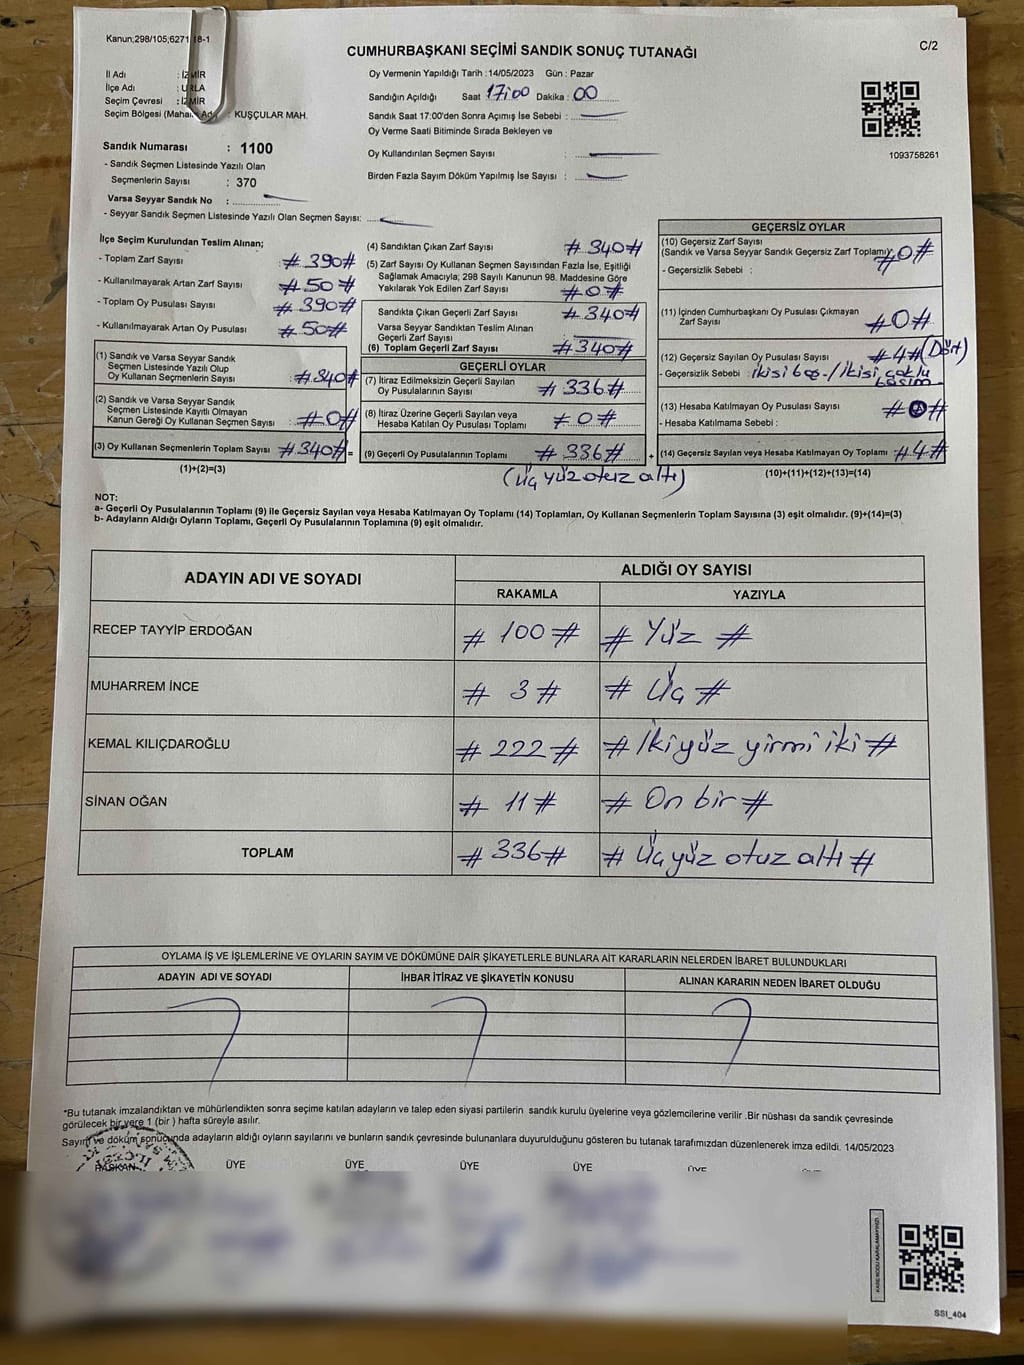 Kanun;298/105;6271/18-1
CUMHURBAŞKANI SEÇİMİ SANDIK SONUÇ TUTANAĞI
C/2
İl Adı : İZMİR
İlçe Adı : URLA
Seçim Çevresi : İZMİR
Seçim Bölgesi (Mahalle Adı) : KUŞÇULAR MAH.
Sandık Numarası : 1100
- Sandık Seçmen Listesinde Yazılı Olan
Seçmenlerin Sayısı : 370
Varsa Seyyar Sandık No :
- Seyyar Sandık Seçmen Listesinde Yazılı Olan Seçmen Sayısı:
Oy Vermenin Yapıldığı Tarih :14/05/2023 Gün : Pazar
Sandığın Açıldığı Saat 17:00 Dakika : 00
Sandık Saat 17:00'den Sonra Açımış İse Sebebi :
Oy Verme Saati Bitiminde Sırada Bekleyen ve
Oy Kullandırılan Seçmen Sayısı :
Birden Fazla Sayım Döküm Yapılmış İse Sayısı :
1093758261
İlçe Seçim Kurulundan Teslim Alınan;
- Toplam Zarf Sayısı : # 390#
- Kullanılmayarak Artan Zarf Sayısı : # 50 #
- Toplam Oy Pusulası Sayısı : # 390#
- Kullanılmayarak Artan Oy Pusulası : # 50#
(1) Sandık ve Varsa Seyyar Sandık
Seçmen Listesinde Yazılı Olup
Oy Kullanan Seçmenlerin Sayısı : #340#
(2) Sandık ve Varsa Seyyar Sandık
Seçmen Listesinde Kayıtlı Olmayan
Kanun Gereği Oy Kullanan Seçmen Sayısı : #0#
(3) Oy Kullanan Seçmenlerin Toplam Sayısı : # 340# =
(1)+(2)=(3)
(4) Sandıktan Çıkan Zarf Sayısı # 340#
(5) Zarf Sayısı Oy Kullanan Seçmen Sayısından Fazla İse, Eşitliği
Sağlamak Amacıyla; 298 Sayılı Kanunun 98. Maddesine Göre
Yakılarak Yok Edilen Zarf Sayısı #0#
Sandıkta Çıkan Geçerli Zarf Sayısı : # 340#
Varsa Seyyar Sandıktan Teslim Alınan
Geçerli Zarf Sayısı :
(6) Toplam Geçerli Zarf Sayısı : #340#
GEÇERLİ OYLAR
(7) İtiraz Edilmeksizin Geçerli Sayılan
Oy Pusulalarının Sayısı : # 336#
(8) İtiraz Üzerine Geçerli Sayılan veya
Hesaba Katılan Oy Pusulası Toplamı : # 0 #
(9) Geçerli Oy Pusulalarının Toplamı : # 336# +
(Üç yüz otuz altı)
GEÇERSİZ OYLAR
(10) Geçersiz Zarf Sayısı
(Sandık ve Varsa Seyyar Sandık Geçersiz Zarf Toplamı) : #0#
- Geçersizlik Sebebi :
(11) İçinden Cumhurbaşkanı Oy Pusulası Çıkmayan
Zarf Sayısı : #0#
(12) Geçersiz Sayılan Oy Pusulası Sayısı : #4# (Dört)
- Geçersizlik Sebebi : ikisi boş / ikisi çoklu
basım
(13) Hesaba Katılmayan Oy Pusulası Sayısı : #0#
- Hesaba Katılmama Sebebi :
(14) Geçersiz Sayılan veya Hesaba Katılmayan Oy Toplamı : #4#
(10)+(11)+(12)+(13)=(14)
NOT:
a- Geçerli Oy Pusulalarının Toplamı (9) ile Geçersiz Sayılan veya Hesaba Katılmayan Oy Toplamı (14) Toplamları, Oy Kullanan Seçmenlerin Toplam Sayısına (3) eşit olmalıdır. (9)+(14)=(3)
b- Adayların Aldığı Oyların Toplamı, Geçerli Oy Pusulalarının Toplamına (9) eşit olmalıdır.
ADAYIN ADI VE SOYADI
ALDIĞI OY SAYISI
RAKAMLA YAZIYLA
RECEP TAYYİP ERDOĞAN # 100 # # Yüz #
MUHARREM İNCE # 3 # # Üç #
KEMAL KILIÇDAROĞLU # 222 # # İki yüz yirmi iki #
SİNAN OĞAN # 11 # # On bir #
TOPLAM # 336# # Üç yüz otuz altı #
OYLAMA İŞ VE İŞLEMLERİNE VE OYLARIN SAYIM VE DÖKÜMÜNE DAİR ŞİKAYETLERLE BUNLARA AİT KARARLARIN NELERDEN İBARET BULUNDUKLARI
ADAYIN ADI VE SOYADI İHBAR İTİRAZ VE ŞİKAYETİN KONUSU ALINAN KARARIN NEDEN İBARET OLDUĞU
*Bu tutanak imzalandıktan ve mühürlendikten sonra seçime katılan adayların ve talep eden siyasi partilerin sandık kurulu üyelerine veya gözlemcilerine verilir .Bir nüshası da sandık çevresinde
görülecek bir yere 1 (bir ) hafta süreyle asılır.
Sayım ve döküm sonucunda adayların aldığı oyların sayılarını ve bunların sandık çevresinde bulunanlara duyurulduğunu gösteren bu tutanak tarafımızdan düzenlenerek imza edildi. 14/05/2023
BAŞKAN ÜYE ÜYE ÜYE ÜYE ÜYE
KARE KODU KARALAMAYINIZ!
SSI_404